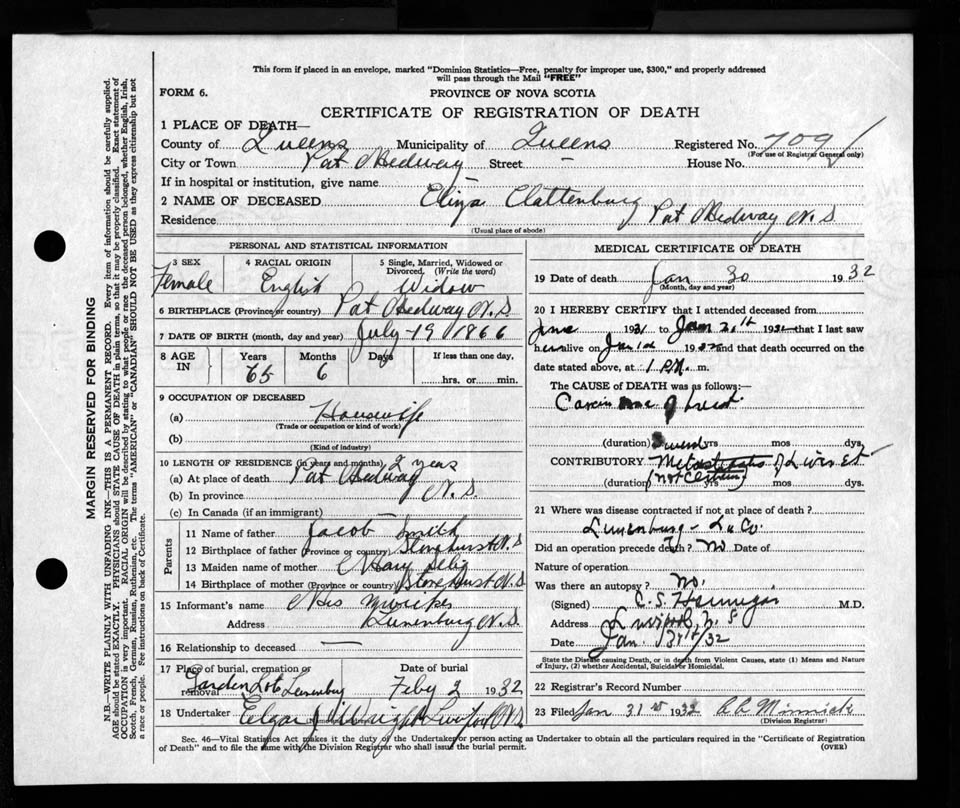 This form if placed in an envelope, marked "Dominion Statistics—Free, penalty for improper use, $300," and properly addressed
will pass through the Mail "FREE"
FORM 6.
PROVINCE OF NOVA SCOTIA
CERTIFICATE OF REGISTRATION OF DEATH
1 PLACE OF DEATH—
County of Queens Municipality of Queens Registered No. 709
(For use of Registrar General only)
City or Town Port Medway Street — House No.
If in hospital or institution, give name —
2 NAME OF DECEASED Eliza Clattenburg
Residence Port Medway N.S
(Usual place of abode)
PERSONAL AND STATISTICAL INFORMATION
3 SEX 4 RACIAL ORIGIN 5 Single, Married, Widowed or
Divorced. (Write the word)
Female English Widow
6 BIRTHPLACE (Province or country) Port Medway N.S
7 DATE OF BIRTH (month, day and year) July 19 1866
8 AGE IN Years Months Days If less than one day,
65 6 hrs. or min.
9 OCCUPATION OF DECEASED
(a) Housewife
(Trade or occupation or kind of work)
(b)
(Kind of industry)
10 LENGTH OF RESIDENCE (in years and months) 2 years
(a) At place of death Port Medway
(b) In province N.S.
(c) In Canada (if an immigrant)
Parents
11 Name of father Jacob Smith
12 Birthplace of father (Province or country) Stonehurst N.S
13 Maiden name of mother Mary Selig
14 Birthplace of mother (Province or country) Stonehurst N.S
15 Informant's name Mrs
Address Lunenburg N.S.
16 Relationship to deceased —
17 Place of burial, cremation or removal Date of burial
Garden Lots Lunenburg Feby 2 1932
18 Undertaker Liverpool N.S.
MEDICAL CERTIFICATE OF DEATH
19 Date of death Jan 30 1932
(Month, day and year)
20 I HEREBY CERTIFY that I attended deceased from
June 1931 to Jan 1932 that I last saw
her alive on Jan 1932 and that death occurred on the
date stated above, at 1 P.M. m.
The CAUSE OF DEATH was as follows:—
Carcinoma of breast
(duration) yrs mos dys.
CONTRIBUTORY Metastasis of Liver
(duration) yrs mos dys.
(not certain)
21 Where was disease contracted if not at place of death?
Lunenburg - Lu Co.
Did an operation precede death? No Date of
Nature of operation
Was there an autopsy? No.
(Signed) C. S. Hannigan M.D.
Address Liverpool, N.S
Date Jan. 31st/32
State the Disease causing Death, or in death from Violent Causes, state (1) Means and Nature
of Injury, (2) whether Accidental, Suicidal or Homicidal.
22 Registrar's Record Number
23 Filed Jan 31st 1932
(Division Registrar)
Sec. 46—Vital Statistics Act makes it the duty of the Undertaker or person acting as Undertaker to obtain all the particulars required in the "Certificate of Registration
of Death" and to file the same with the Division Registrar who shall issue the burial permit.
(OVER)
MARGIN RESERVED FOR BINDING
N.B.—WRITE PLAINLY WITH UNFADING INK—THIS IS A PERMANENT RECORD. Every item of information should be carefully supplied.
AGE should be stated EXACTLY. PHYSICIANS should STATE CAUSE OF DEATH in plain terms, so that it may be properly classified. Exact statement of
OCCUPATION is very important. RACIAL ORIGIN will be described by stating to what people or race the deceased person belonged, whether English, Irish,
Scotch, French, German, Russian, Ruthenian, etc. The terms "AMERICAN" or "CANADIAN" SHOULD NOT BE USED as they express citizenship but not
a race or people. See instructions on back of Certificate.